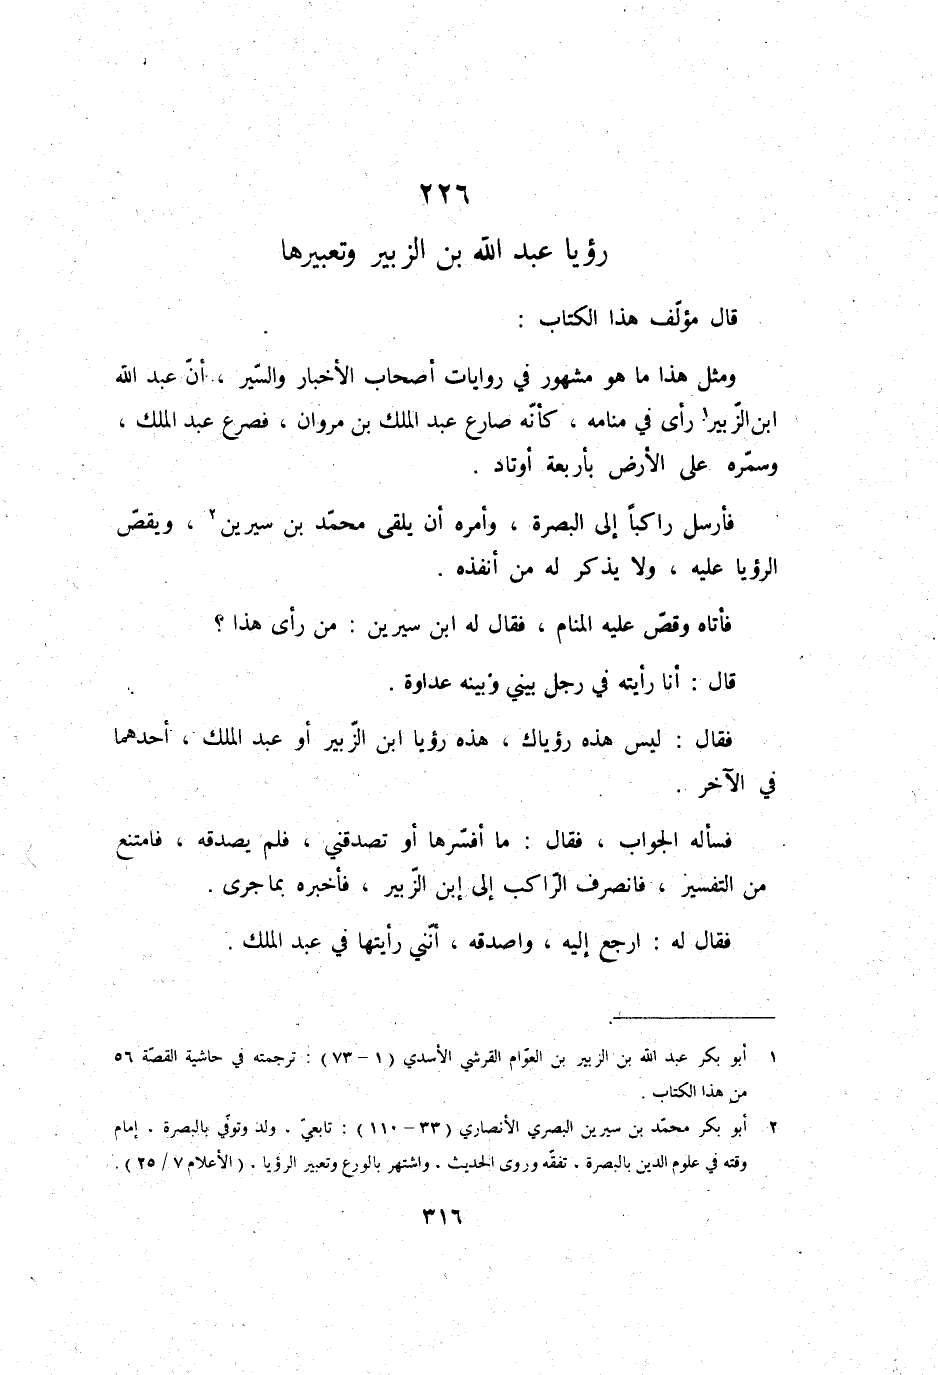 ٢٢٦
رؤيا عبد الله بن الزبير وتعبيرها
قال مؤلّف هذا الكتاب :
ومثل هذا ما هو مشهور في روايات أصحاب الأخبار والسّير ، أنّ عبد الله
ابن الزّبير١ رأى في منامه ، كأنّه صارع عبد الملك بن مروان ، فصرع عبد الملك ،
وسمّره على الأرض بأربعة أوتاد .
فأرسل راكباً إلى البصرة ، وأمره أن يلقى محمّد بن سيرين٢ ، ويقصّ
الرؤيا عليه ، ولا يذكر له من أنفذه .
فأتاه وقصّ عليه المنام ، فقال له ابن سيرين : من رأى هذا ؟
قال : أنا رأيته في رجل بيني وبينه عداوة .
فقال : ليس هذه رؤياك ، هذه رؤيا ابن الزّبير أو عبد الملك ، أحدهما
في الآخر .
فسأله الجواب ، فقال : ما أفسّرها أو تصدقني ، فلم يصدقه ، فامتنع
من التفسير ، فانصرف الرّاكب إلى إبن الزّبير ، فأخبره بما جرى .
فقال له : ارجع إليه ، واصدقه ، أنّني رأيتها في عبد الملك .
١ أبو بكر عبد الله بن الزبير بن العوّام القرشي الأسدي ( ١ – ٧٣ ) : ترجمته في حاشية القصّة ٥٦
من هذا الكتاب .
٢ أبو بكر محمّد بن سيرين البصري الأنصاري ( ٣٣ – ١١٠ ) : تابعيّ . ولد وتوفّي بالبصرة . إمام
وقته في علوم الدين بالبصرة . تفقّه وروى الحديث . واشتهر بالورع وتعبير الرؤيا . ( الأعلام ٧ / ٢٥ ) .
٣١٦